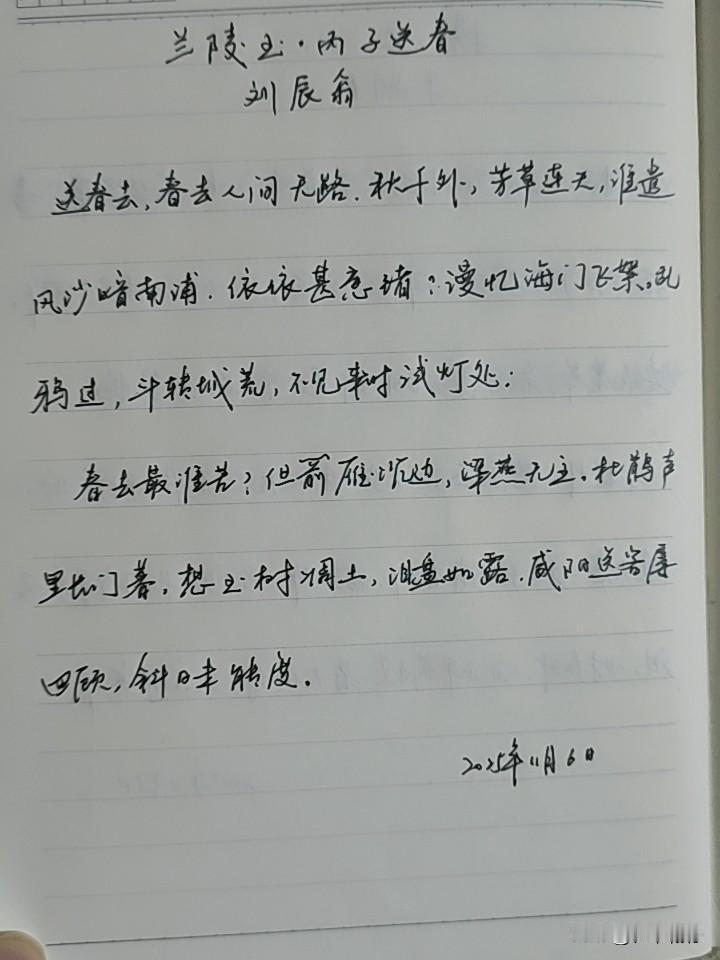 兰陵王·丙子送春
刘辰翁
送春去,春去人间无路.秋千外,芳草连天,谁遣
风沙暗南浦.依依甚意绪?漫忆海门飞絮。乱
鸦过,斗转城荒,不见来时试灯处.
春去最谁苦?但箭雁沉边,梁燕无主.杜鹃声
里长门暮,想玉树凋土,泪盘如露.咸阳送客屡
回顾,斜日未能度.
2025年11月6日